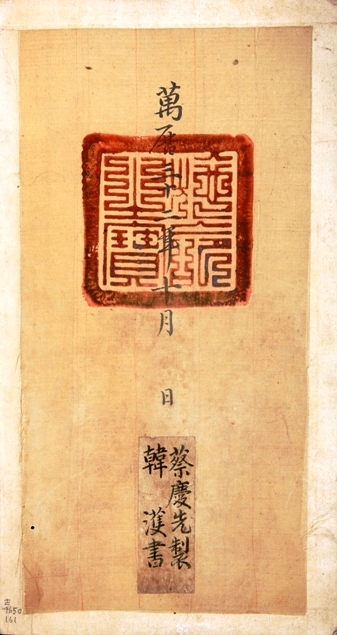 萬曆三十二年十月 日
蔡慶先製
韓 濩書
161